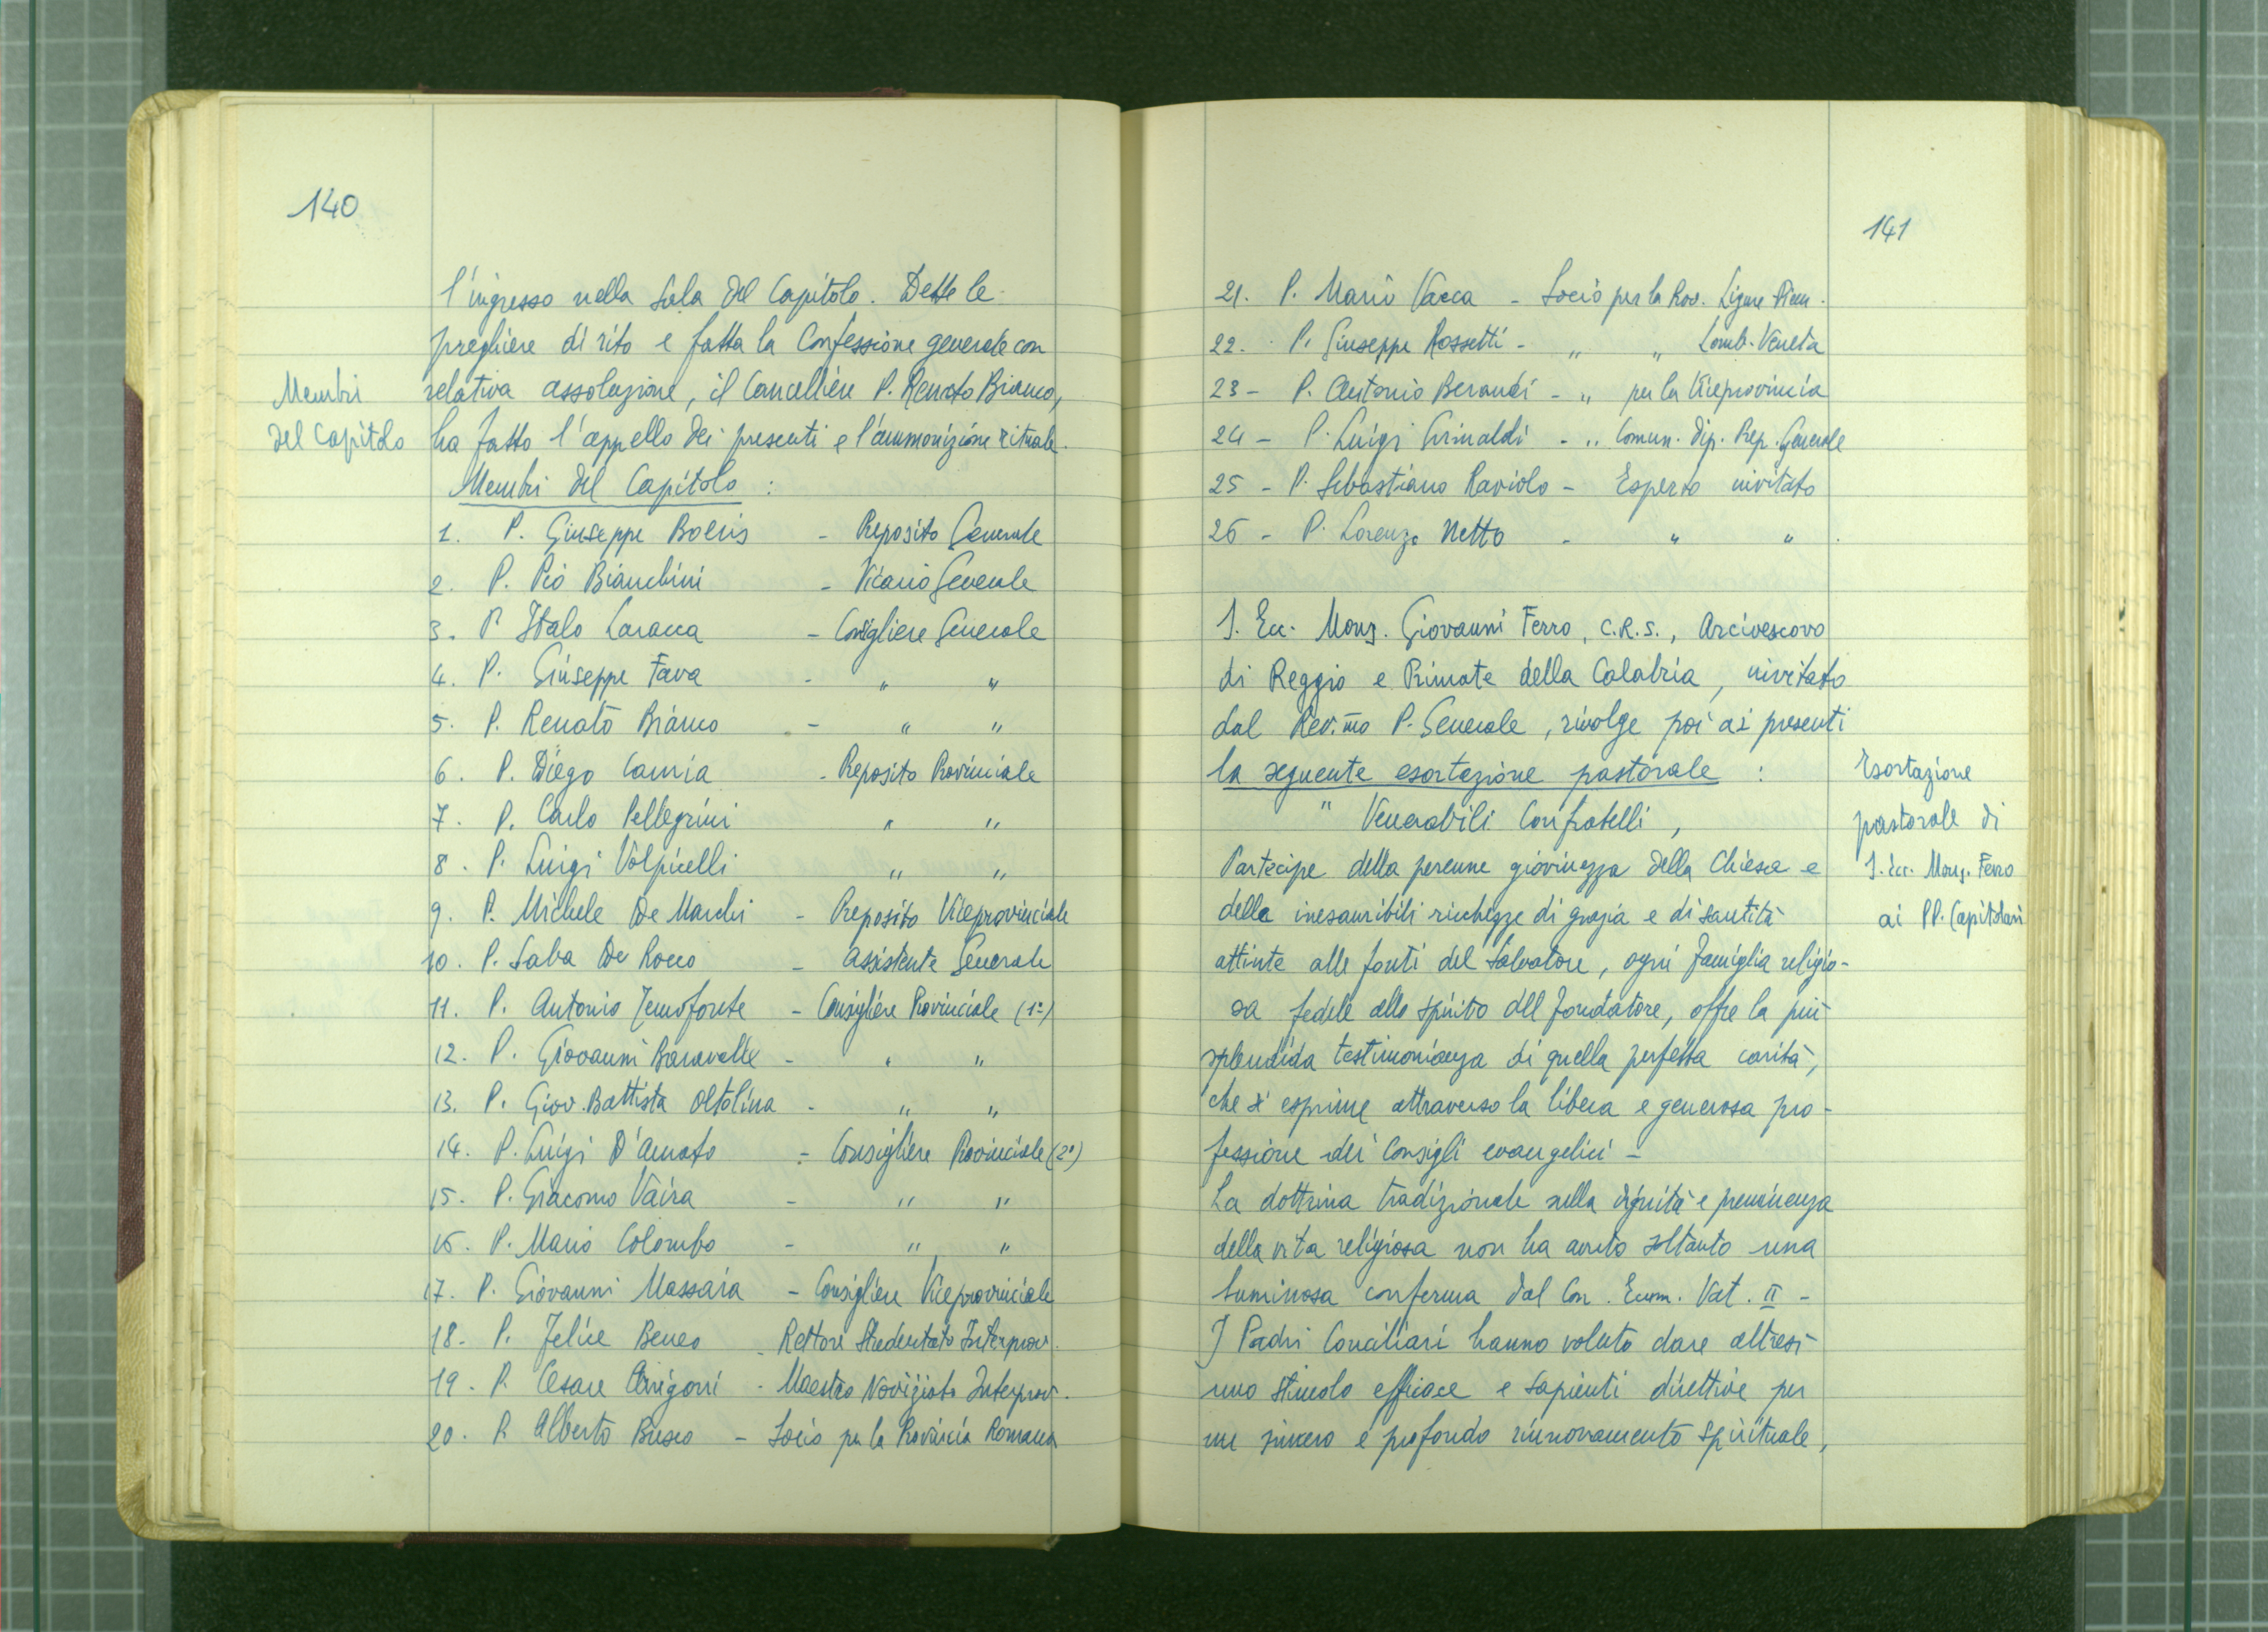 140
l'ingresso nella Sala del Capitolo. Dette le
preghiere di rito e fatta la Confessione generale con
Membri
relativa assoluzione, il Cancelliere P. Renato Bianco,
del Capitolo
ha fatto l'appello dei presenti e l'ammonizione rituale.
Membri del Capitolo :
1. P. Giuseppe Boeris - Preposito Generale
2. P. Pio Bianchini - Vicario Generale
3. P. Italo Laracca - Consigliere Generale
4. P. Giuseppe Fava - " "
5. P. Renato Bianco - " "
6. P. Diego Camia - Preposito Provinciale
7. P. Carlo Pellegrini " "
8. P. Luigi Volpicelli " "
9. P. Michele De Marchi - Preposito Viceprovinciale
10. P. Saba De Rocco - Assistente Generale
11. P. Antonio Temofonte - Consigliere Provinciale (1°)
12. P. Giovanni Baravalle - " "
13. P. Giov. Battista Oltolina - " "
14. P. Luigi D'Amato - Consigliere Provinciale (2°)
15. P. Giacomo Vaira - " "
16. P. Mario Colombo - " "
17. P. Giovanni Massaia - Consigliere Viceprovinciale
18. P. Felice Beneo - Rettore Studentato Interprov.
19. P. Cesare Arrigoni - Maestro Noviziato Interprov.
20. P. Alberto Busco - Socio per la Provincia Romana
141
21. P. Mario Vacca - Socio per la Prov. Ligure Piem.
22. P. Giuseppe Rossetti - " " Lomb. Veneta
23 - P. Antonio Beraudi - " per la Viceprovincia
24 - P. Luigi Grimaldi - " Comun. dip. Prep. Generale
25 - P. Sebastiano Raviolo - Esperto invitato
26 - P. Lorenzo Netto - " " .
S. Ecc. Mons. Giovanni Ferro, C.R.S., Arcivescovo
di Reggio e Primate della Calabria, invitato
dal Rev.mo P. Generale, rivolge poi ai presenti
la seguente esortazione pastorale :
" Venerabili Confratelli,
Partecipe della perenne giovinezza della Chiesa e
delle inesauribili ricchezze di grazia e di santità
attinte alle fonti del Salvatore, ogni famiglia religio-
sa fedele allo spirito del fondatore, offre la più
splendida testimonianza di quella perfetta carità,
che si esprime attraverso la libera e generosa pro-
fessione dei Consigli evangelici -
La dottrina tradizionale sulla dignità e preminenza
della vita religiosa non ha avuto soltanto una
luminosa conferma dal Con. Ecum. Vat. II -
I Padri Conciliari hanno voluto dare altresì
uno stimolo efficace e sapienti direttive per
un sincero e profondo rinnovamento spirituale,
Esortazione
pastorale di
S. Ecc. Mons. Ferro
ai PP. Capitolari